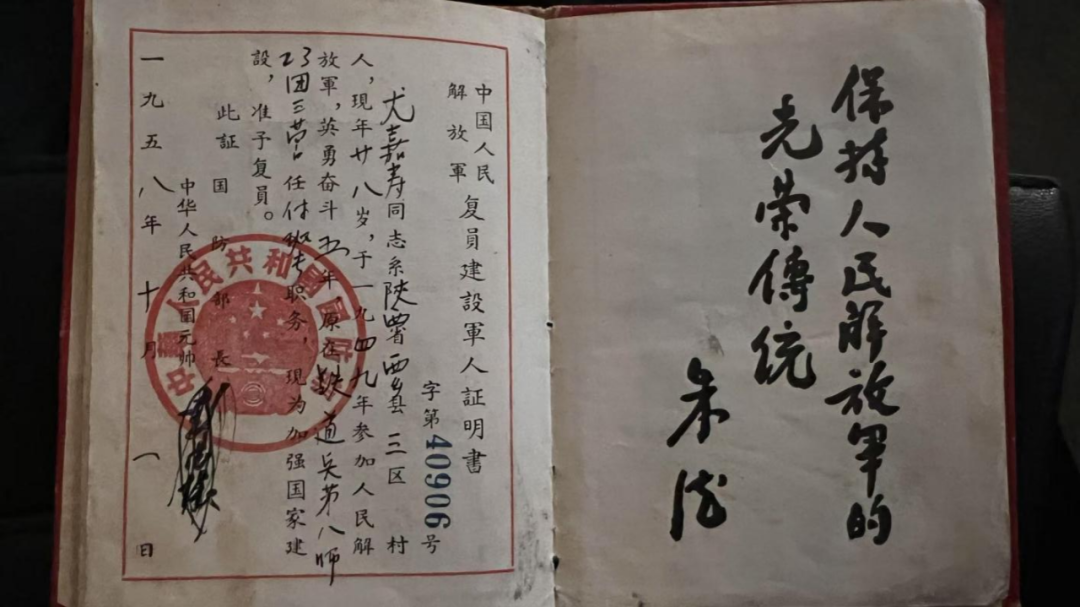 保持人民解放军的
光荣傳統
朱德
中国人民
解放軍
复員建設軍人証明書
字第40906号
尤嘉寿同志系陝西省西乡县三区 村
人,現年廿八岁,于一九四九年参加人民解
放軍,英勇奋斗五年,原在鉄道兵第八师
团三营任付班长职务,現为加强国家建
設,准予复員。
此証
国防部長
中华人民共和国元帅
一九五八年十月一日
中華人民共和國國防部